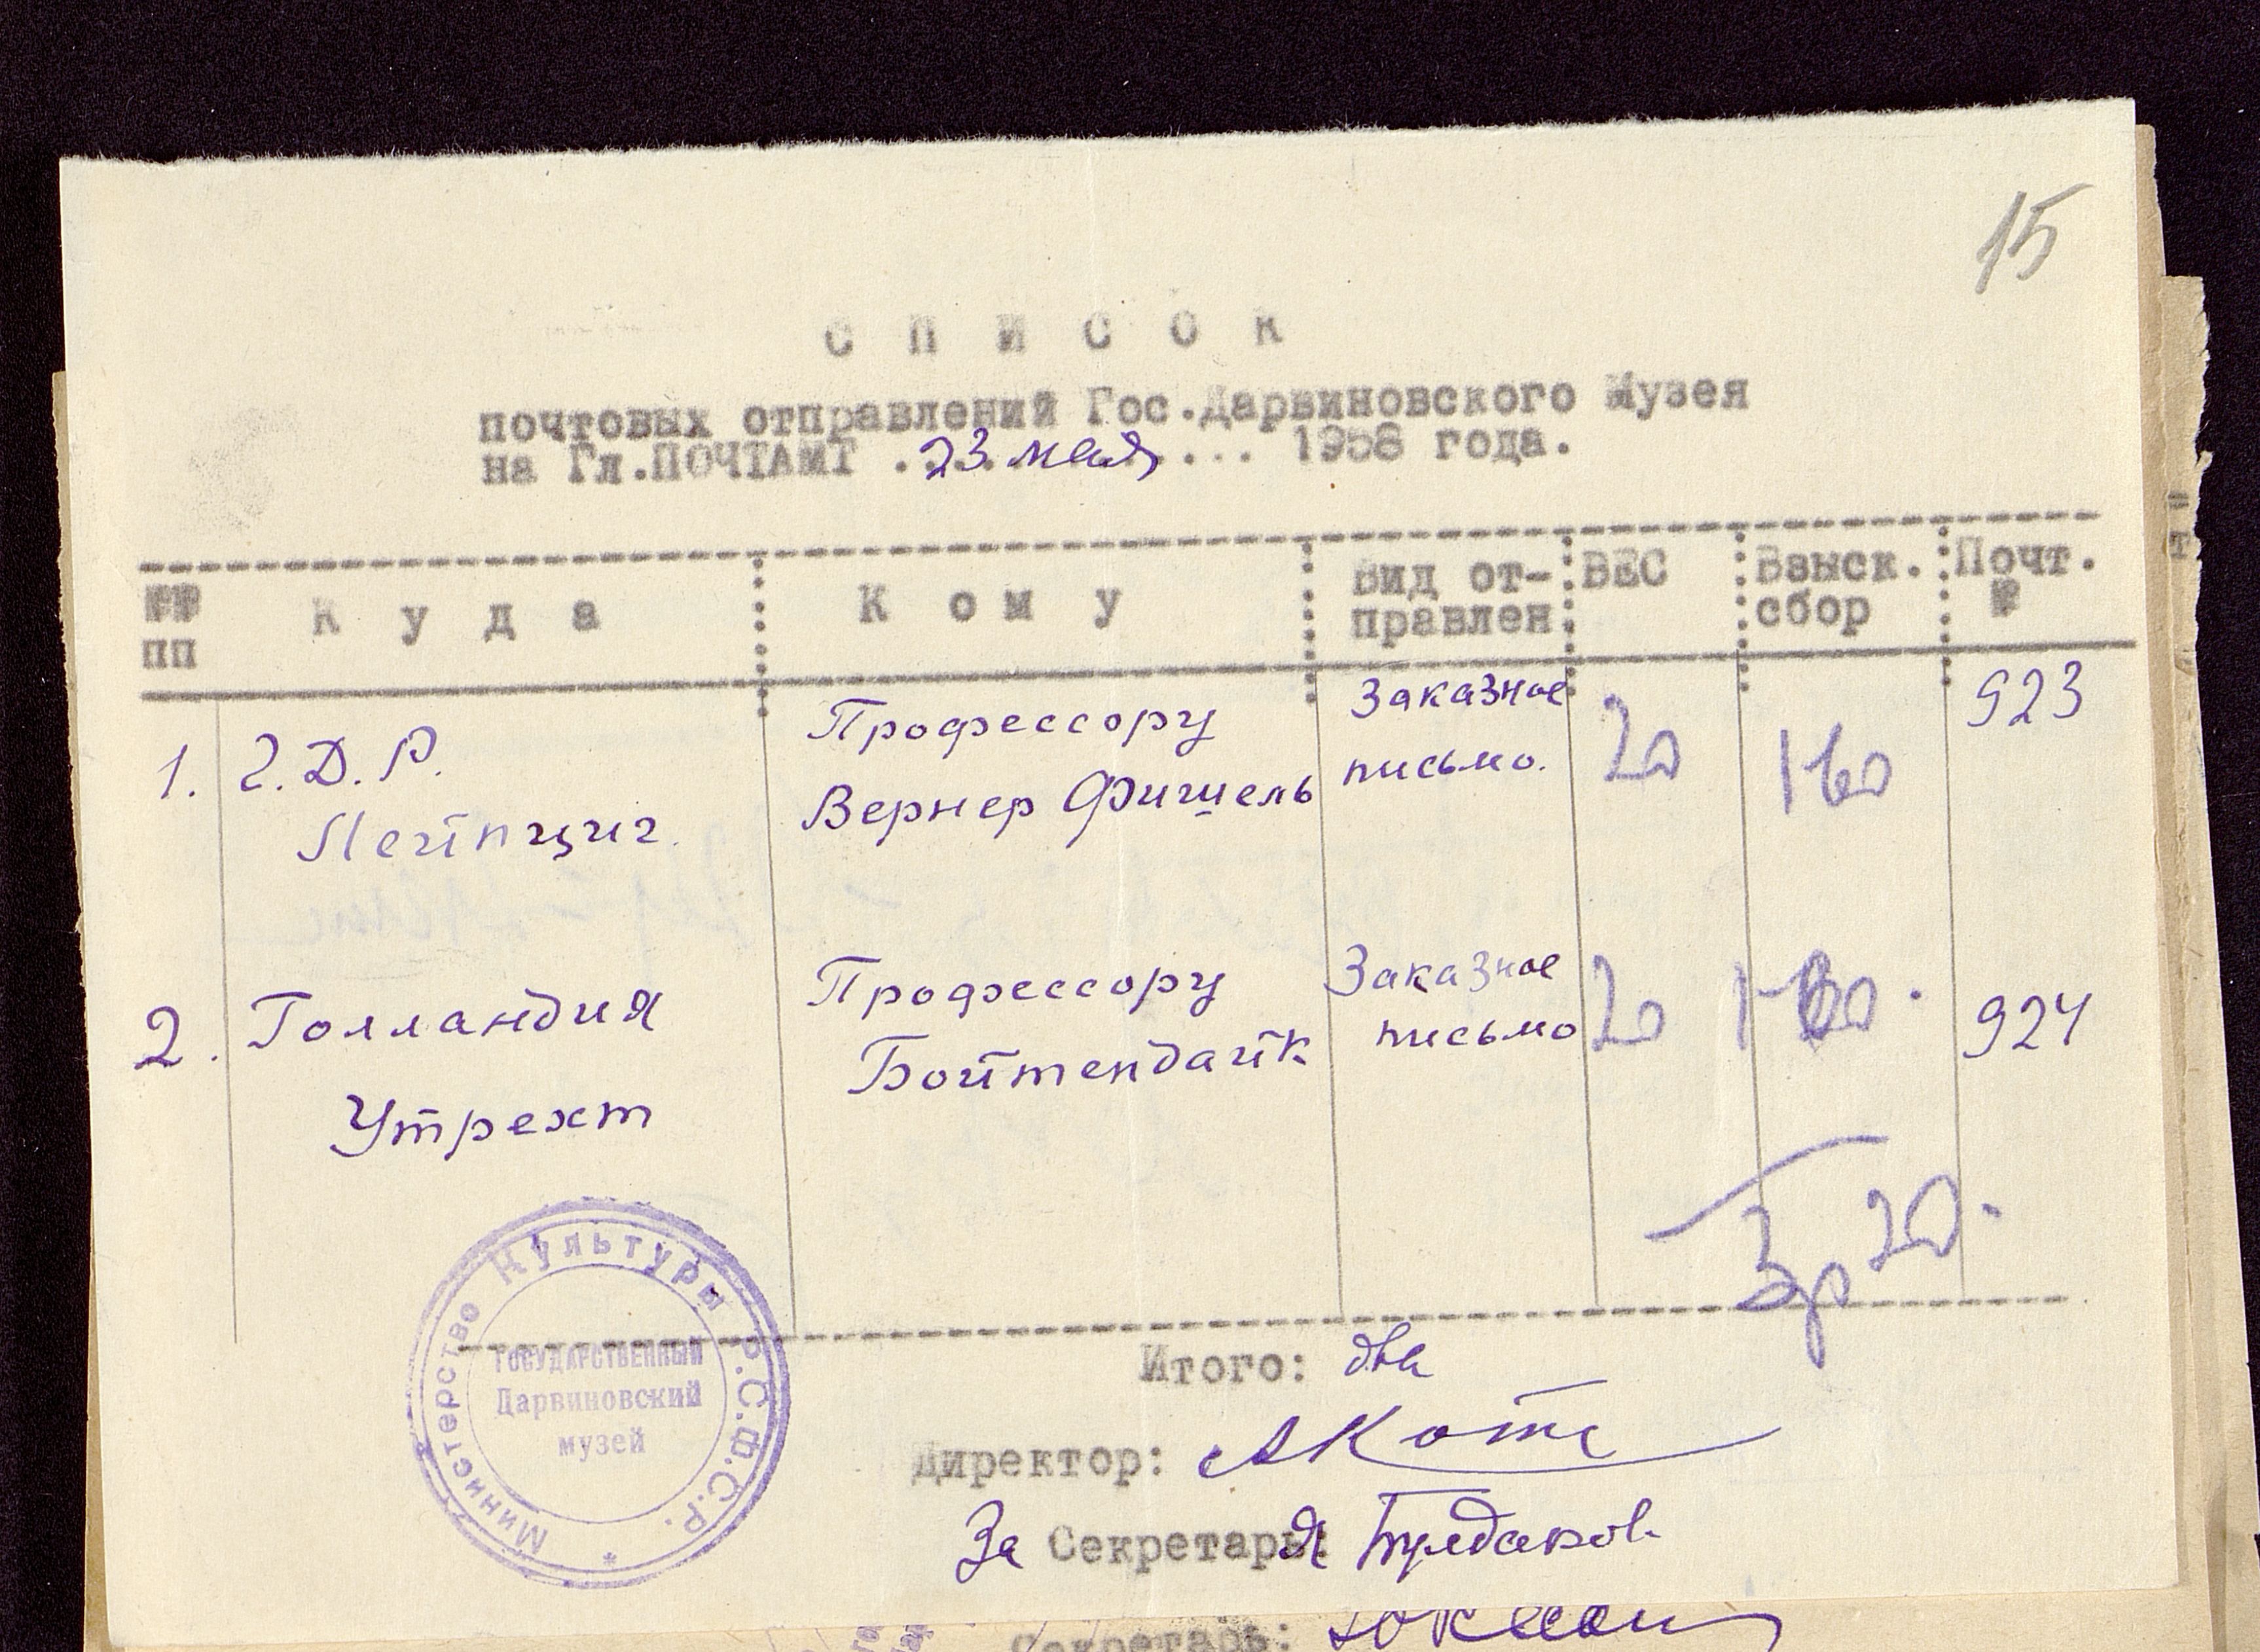 15
С П И С О К
почтовых отправлений Гос.Дарвиновского Музея
на Гл.ПОЧТАМТ . 23 мая ... 1958 года.
№№ пп
К у д а
К о м у
Вид от-
правлен
ВЕС
Взыск.
сбор
Почт.
№
1. Г.Д.Р.
Лейпциг.
Профессору
Вернер Фишель
Заказное
письмо.
20
1 60
923
2. Голландия
Утрехт
Профессору
Бойтендайк
Заказное
письмо
20
1-60.
924
3р 20.
Итого: два
Директор: АКотс
За Секретарь:
Министерство Культуры Р.С.Ф.С.Р. *
ГОСУДАРСТВЕННЫЙ
Дарвиновский
музей
Секретарь: